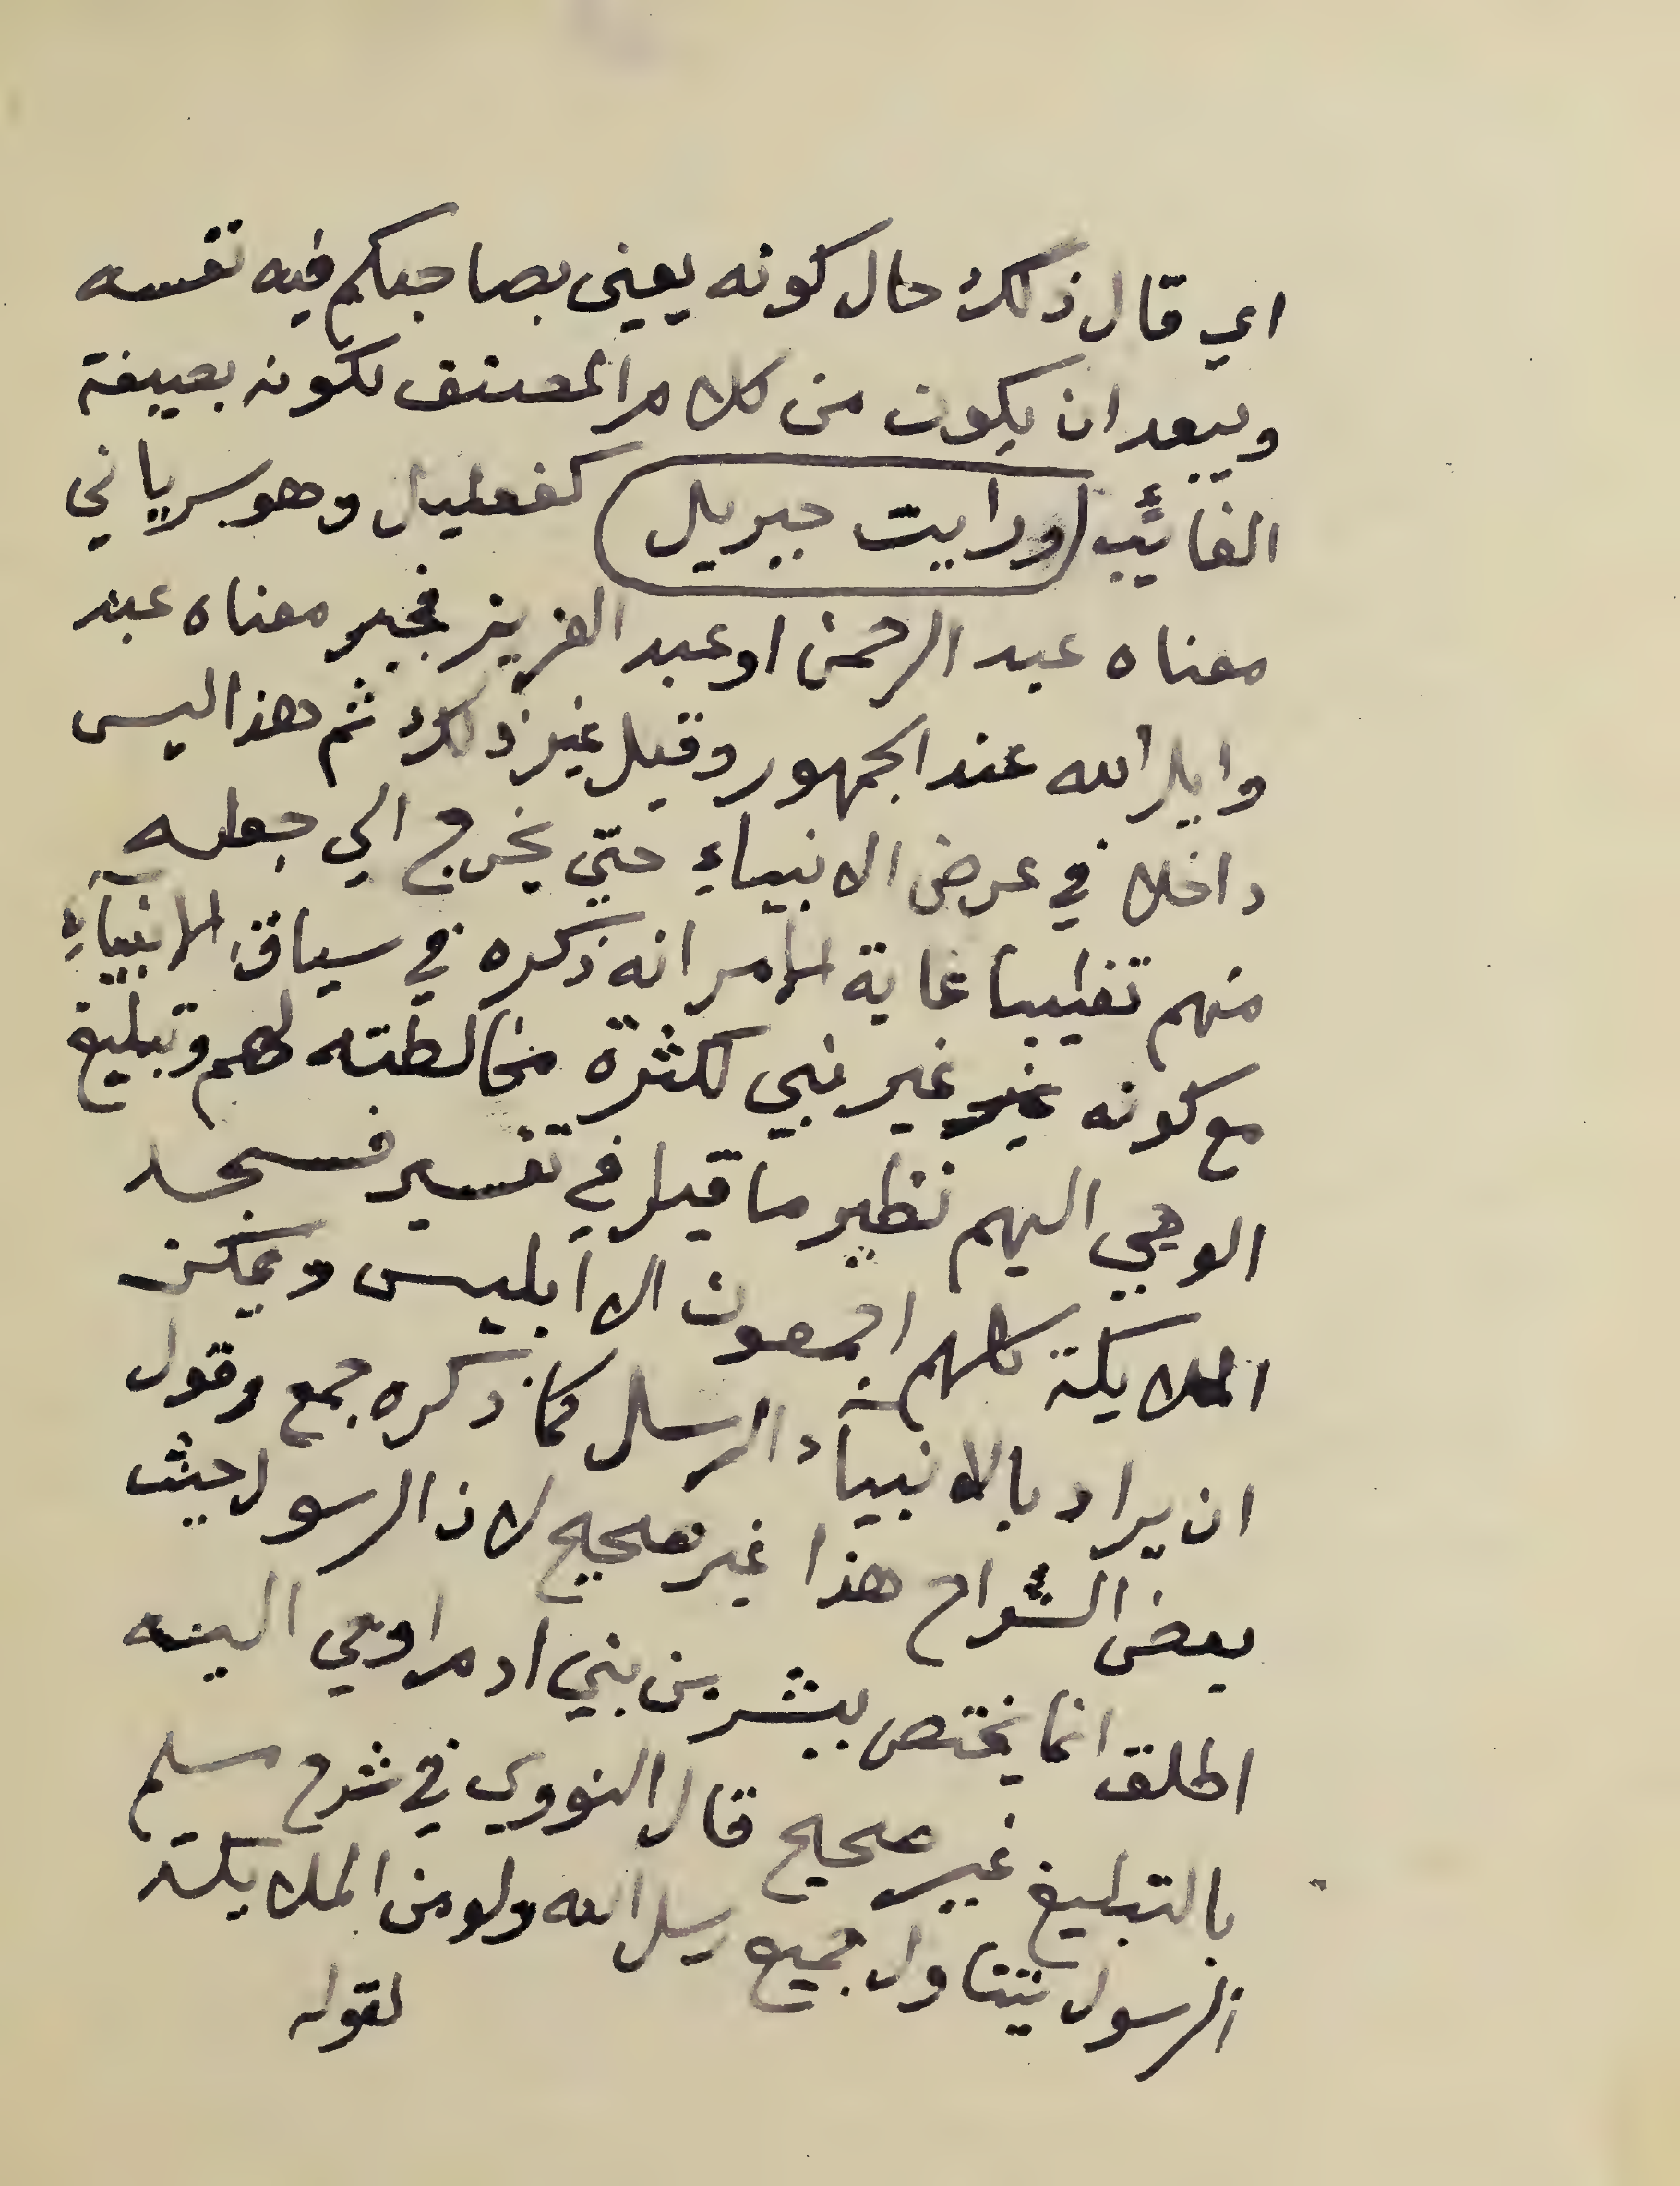 اي قال ذلك حال كونه يعني بصاحبكم فيه نفسه
ويبعد ان يكون من كلام المصنف لكونه بصيغة
الغائب (ورايت جبريل) كفعليل وهو سرياني
معناه عبد الرحمن او عبد العزيز فجبر معناه عبد
وايل الله عند الجمهور وقيل غير ذلك ثم هذا ليس
داخلا في عرض الانبياء حتي يخرج الي جعله
منهم تغليبا غاية الامر انه ذكره في سياق الانبياء
مع كونه غير غير نبي لكثرة مخالطته لهم وتبليغ
الوحي اليهم نظير ما قيل في تفسير فسجد
الملايكة كلهم اجمعون الا ابليس ويمكن
ان يراد بالانبياء الرسل كما ذكره جمع وقول
بعض الشراح هذا غير صحيح لان الرسول حيث
اطلق انما يختص ببشر من بني ادم اوحي اليه
بالتبليغ غير صحيح قال النووي في شرح مسلم
الرسول يتناول جميع رسل الله ولو من الملايكة
لقوله